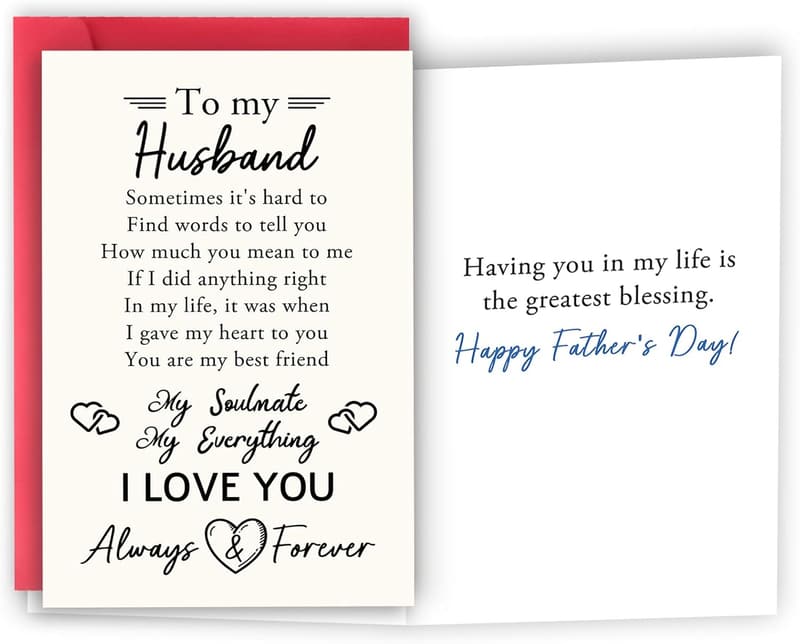 To my
Husband
Sometimes it's hard to
Find words to tell you
How much you mean to me
If I did anything right
In my life, it was when
I gave my heart to you
You are my best friend
My Soulmate
My Everything
I LOVE YOU
Always & Forever
Having you in my life is
the greatest blessing.
Happy Father's Day!